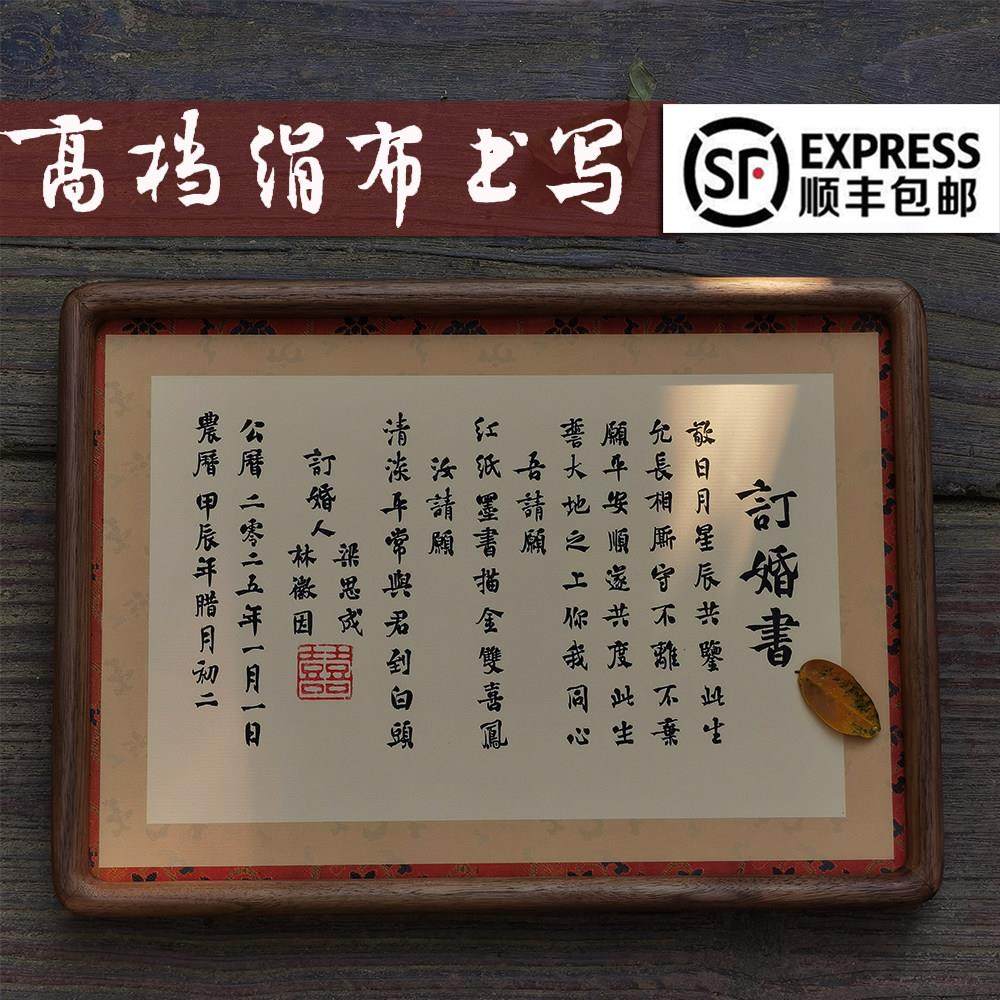 高档绢布书写
SF
EXPRESS
顺丰包邮
訂婚書
敬日月星辰共鑒此生
允長相厮守不離不棄
願平安順遂共度此生
誓大地之上你我同心
吾請願
红纸墨書描金雙喜鳳
汝請願
清淡平常與君到白頭
訂婚人
梁思成
林徽因
囍
公曆二零二五年一月一日
農曆甲辰年腊月初二